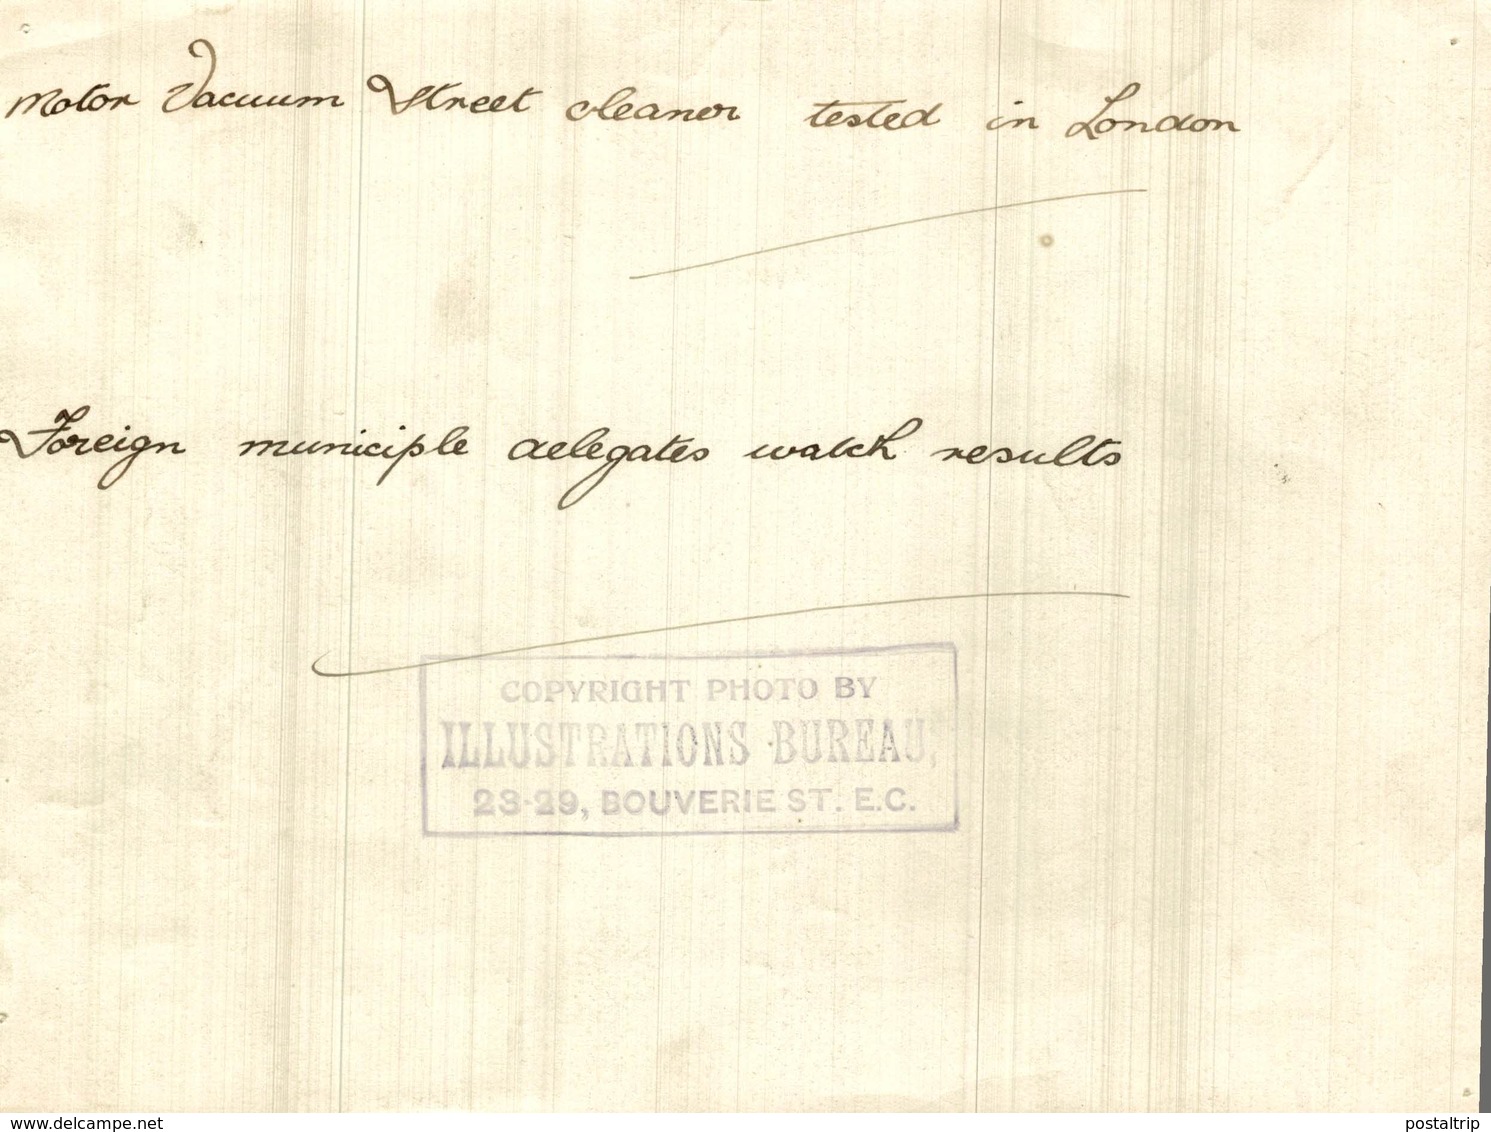 Motor Vacuum Street cleaner tested in London
Foreign municiple delegates watch results
COPYRIGHT PHOTO BY
ILLUSTRATIONS BUREAU,
23-29, BOUVERIE ST. E.C.
www.delcampe.net
postaltrip